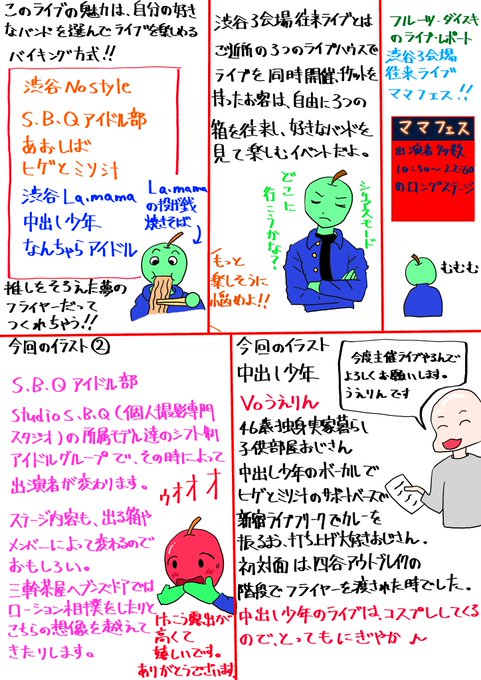 フルーツ・ダイスキ
のライブ・レポート
渋谷3会場
往来ライブ
ママフェス!!
ママフェス
出演者多数
10:30〜22:60
のロングステージ
むむむ
渋谷3会場往来ライブとは
ご近所の3つのライブハウスで
ライブを同時開催、チケットを
持ったお客は、自由に3つの
箱を往来し、好きなバンドを
見て楽しむイベントだよ。
どこに
行こうかな?
シリアスモード
もっと
楽しそうに
悩めよ!!
このライブの魅力は、自分の好き
なバンドを選んでライブを楽しめる
バイキング方式!!
渋谷 No style
S.B.Qアイドル部
あおしば
ヒゲとミソ汁
渋谷 La.mama
中出し少年
なんちゃらアイドル
La.mama
の投げ銭
焼きそば
推しをそろえた夢の
フライヤーだって
つくれちゃう!!
今回のイラスト
中出し少年
Voうえりん
46歳独身実家暮らし
子供部屋おじさん
中出し少年のボーカルで
ヒゲとミソ汁のサポートベースで
新宿ライブフリークでカレーを
振るまお、打ち上げ大好きおじさん。
初対面は、四谷アウトブレイクの
階段でフライヤーを渡された時でした。
中出し少年のライブは、コスプレしてくる
ので、とってもにぎやか〜
今度主催ライブやるんで
よろしくお願いします。
うえりんです
今回のイラスト②
S.B.Qアイドル部
Studio S.B.Q(個人撮影専門
スタジオ)の所属モデル達のシフト制
アイドルグループで、その時によって
出演者が変わります。
ゥオオオ
ステージ内容も、出る箱や
メンバーによって変わるので
おもしろい。
三軒茶屋ヘブンズドアでは
ローション相撲をしたりと
こちらの想像を越えて
きたりします。
けっこう露出が
高くて
嬉しいです。
ありがとうございます